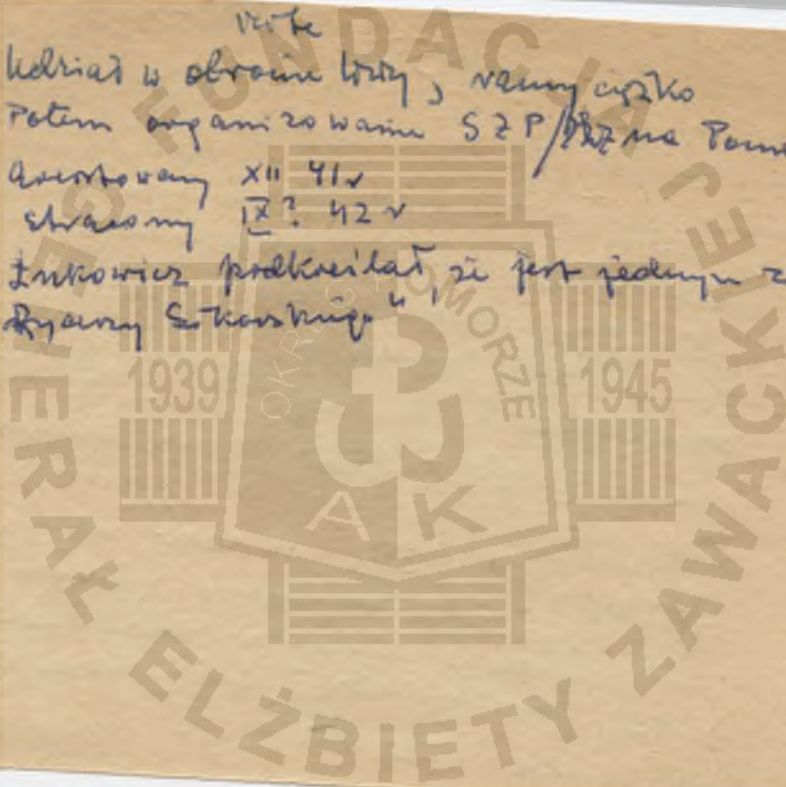 Udział w obronie Lwowa, ranny ciężko
Potem organizowanie SZP/ZWZ na Pom
Aresztowany XII 41 r
stracony IX? 42 r
Łukowicz podkreślał, że jest jednym z
Rycerzy Sikorskiego"
FUNDACJA
GENERAŁ ELŻBIETY ZAWACKIEJ
OKRĘG POMORZE
1939 1945
AK